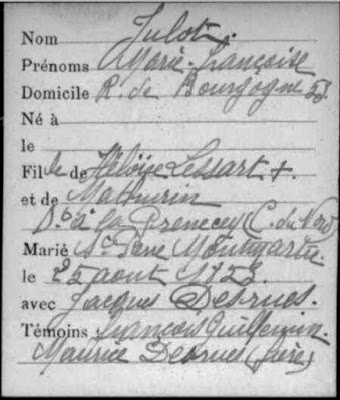 Nom Julot
Prénoms Marie-Françoise
Domicile R. de Bourgogne 53.
Né à
le
Fille de Héloïse Lessart +
et de Mathurin
à la (C. du Nord)
Marié Mont
le 25 aout 1
avec Jacques Desrues.
Témoins François Guillemin.
Maurice Desrues (frère)